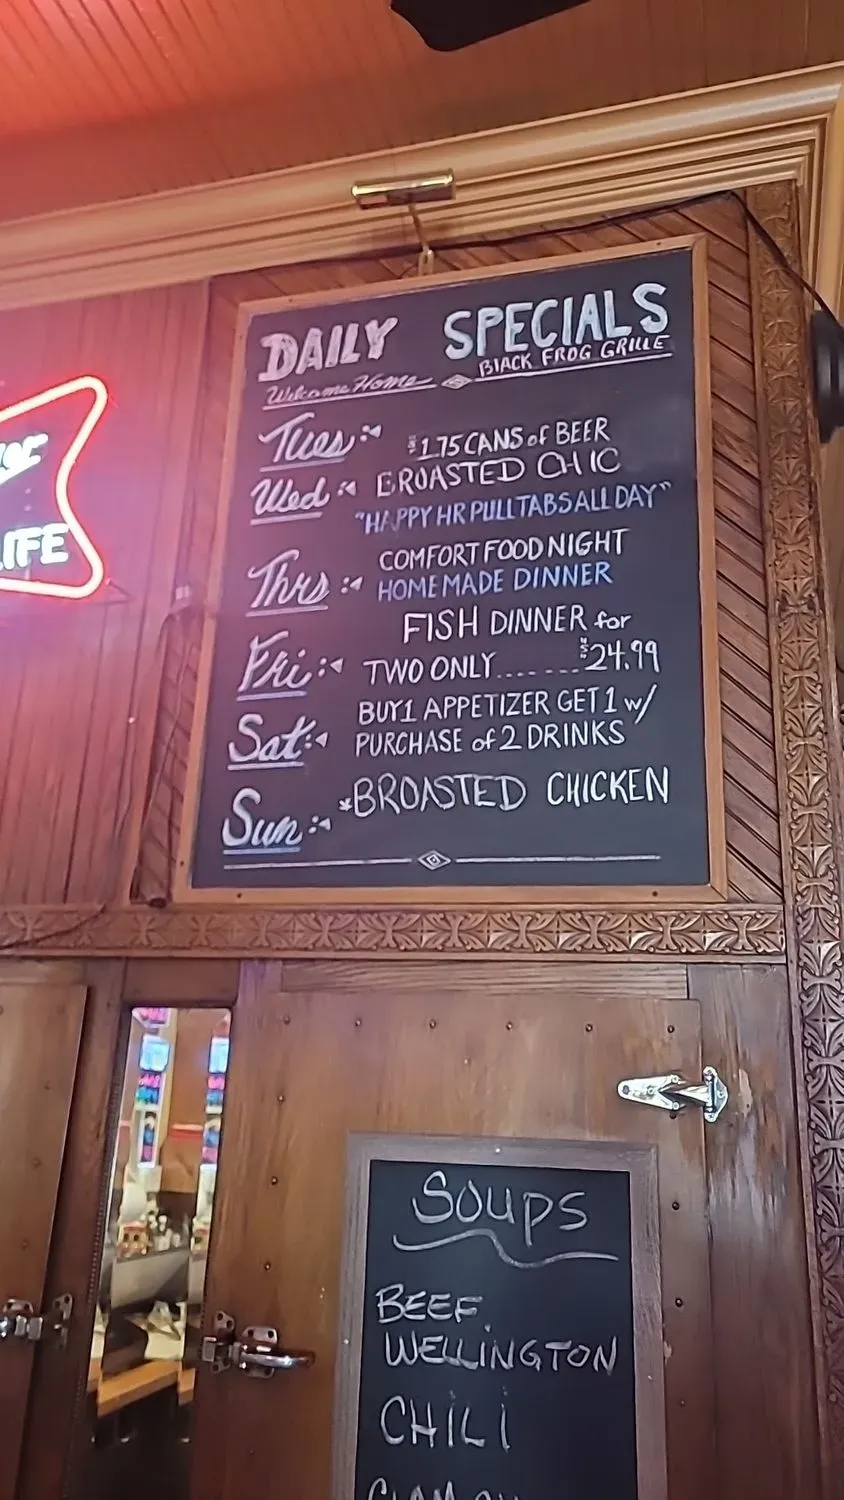 DAILY SPECIALS
Welcome Home BLACK FROG GRILLE
Tues: $1.75 CANS of BEER
Wed: BROASTED CHIC
"HAPPY HR PULLTABS ALL DAY"
Thrs: COMFORT FOOD NIGHT
HOMEMADE DINNER
Fri: FISH DINNER for
TWO ONLY....... $24.99
Sat: BUY 1 APPETIZER GET 1 w/
PURCHASE of 2 DRINKS
Sun: *BROASTED CHICKEN
LIFE
SOUPS
BEEF
WELLINGTON
CHILI